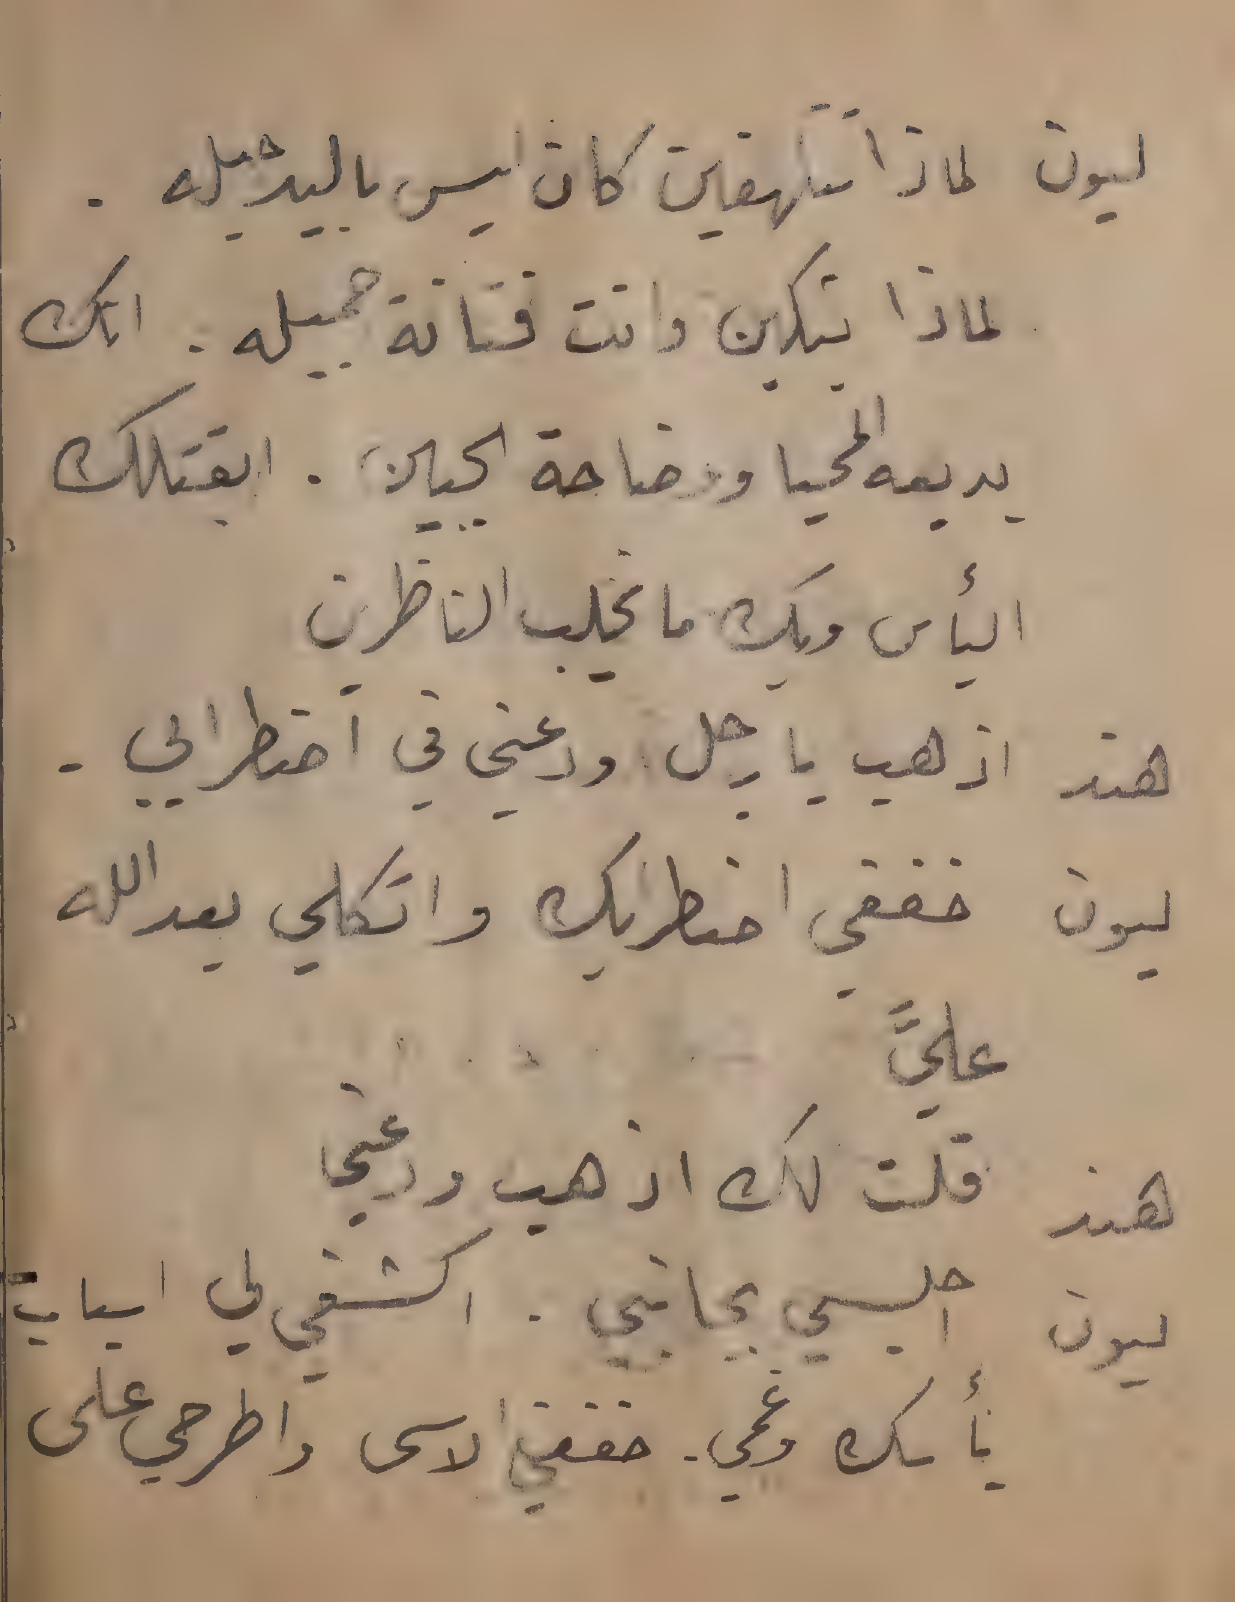 ليون لماذا تتلهفين كان ليس باليد حيله .
لماذا تبكين وانت فتانة جميله . انك
بديعه المحيا ووضاحة الجبين . ايقتلك
اليأس وبك ما يخلب الناظرين
هند اذهب يا رجل ودعني في اضطرابي .
ليون خففي اضطرابك واتكلي بعد الله
عليَّ
هند قلت لك اذهب ودعني
ليون اجلسي بجانبي . اكشفي لي اسباب
يأسك وغمي . خففي الاسى واطرحي على